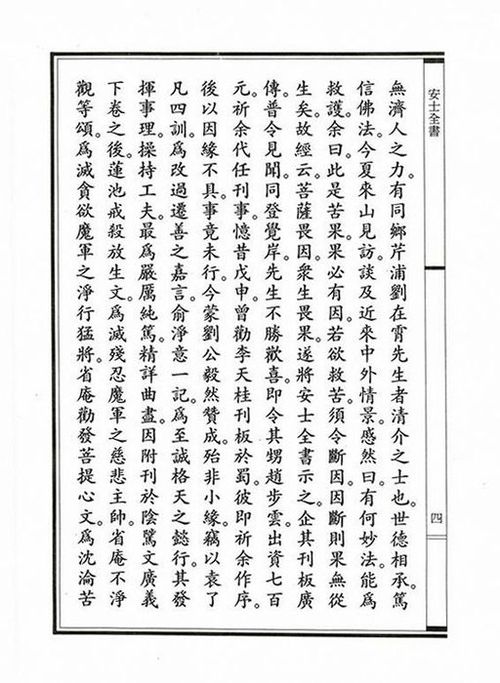 安士全書
四
無濟人之力。有同鄉芹浦劉在霄先生者清介之士也。世德相承。篤
信佛法。今夏來山見訪。談及近來中外情景。慼然曰。有何妙法。能爲
救護。余曰。此是苦果。果必有因。若欲救苦。須令斷因。因斷則果無從
生矣。故經云。菩薩畏因。衆生畏果。遂將安士全書示之。企其刊板廣
傳。普令見聞。同登覺岸。先生不勝歡喜。即令其甥趙步雲出資七百
元。祈余代任刊事。憶昔戊申。曾勸李天桂刊板於蜀。彼即祈余作序。
後以因緣不具。事竟未行。今蒙劉公毅然贊成。殆非小緣。竊以袁了
凡四訓。爲改過遷善之嘉言。俞淨意一記。爲至誠格天之懿行。其發
揮事理。操持工夫。最爲嚴厲純篤。精詳曲盡。因附刊於陰騭文廣義
下卷之後。蓮池戒殺放生文。爲滅殘忍魔軍之慈悲主帥。省庵不淨
觀等頌。爲滅貪欲魔軍之淨行猛將。省庵勸發菩提心文。爲沈淪苦